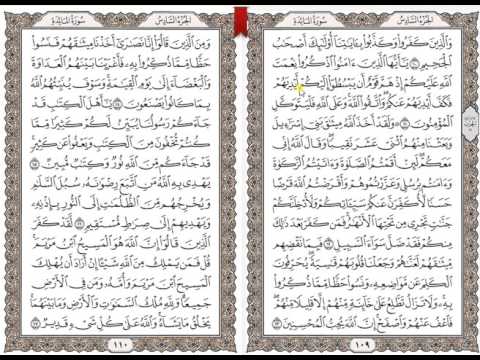 الجُزْءُ السَّادِسُ سُورَةُ المَائِدَةِ
وَٱلَّذِينَ كَفَرُوا۟ وَكَذَّبُوا۟ بِـَٔايَٰتِنَآ أُو۟لَٰٓئِكَ أَصْحَٰبُ
ٱلْجَحِيمِ ١٠ يَٰٓأَيُّهَا ٱلَّذِينَ ءَامَنُوا۟ ٱذْكُرُوا۟ نِعْمَتَ
ٱللَّهِ عَلَيْكُمْ إِذْ هَمَّ قَوْمٌ أَن يَبْسُطُوٓا۟ إِلَيْكُمْ أَيْدِيَهُمْ
فَكَفَّ أَيْدِيَهُمْ عَنكُمْ وَٱتَّقُوا۟ ٱللَّهَ وَعَلَى ٱللَّهِ فَلْيَتَوَكَّلِ
ٱلْمُؤْمِنُونَ ١١ وَلَقَدْ أَخَذَ ٱللَّهُ مِيثَٰقَ بَنِىٓ إِسْرَٰٓءِيلَ
وَبَعَثْنَا مِنْهُمُ ٱثْنَىْ عَشَرَ نَقِيبًا وَقَالَ ٱللَّهُ إِنِّى
مَعَكُمْ لَئِنْ أَقَمْتُمُ ٱلصَّلَوٰةَ وَءَاتَيْتُمُ ٱلزَّكَوٰةَ
وَءَامَنتُم بِرُسُلِى وَعَزَّرْتُمُوهُمْ وَأَقْرَضْتُمُ ٱللَّهَ قَرْضًا
حَسَنًا لَّأُكَفِّرَنَّ عَنكُمْ سَيِّـَٔاتِكُمْ وَلَأُدْخِلَنَّكُمْ
جَنَّٰتٍ تَجْرِى مِن تَحْتِهَا ٱلْأَنْهَٰرُ فَمَن كَفَرَ بَعْدَ ذَٰلِكَ
مِنكُمْ فَقَدْ ضَلَّ سَوَآءَ ٱلسَّبِيلِ ١٢ فَبِمَا نَقْضِهِم
مِّيثَٰقَهُمْ لَعَنَّٰهُمْ وَجَعَلْنَا قُلُوبَهُمْ قَٰسِيَةً يُحَرِّفُونَ
ٱلْكَلِمَ عَن مَّوَاضِعِهِۦ وَنَسُوا۟ حَظًّا مِّمَّا ذُكِّرُوا۟
بِهِۦ وَلَا تَزَالُ تَطَّلِعُ عَلَىٰ خَآئِنَةٍ مِّنْهُمْ إِلَّا قَلِيلًا مِّنْهُمْ
فَٱعْفُ عَنْهُمْ وَٱصْفَحْ إِنَّ ٱللَّهَ يُحِبُّ ٱلْمُحْسِنِينَ ١٣
١٠٩
الجُزْءُ السَّادِسُ سُورَةُ المَائِدَةِ
وَمِنَ ٱلَّذِينَ قَالُوٓا۟ إِنَّا نَصَٰرَىٰٓ أَخَذْنَا مِيثَٰقَهُمْ فَنَسُوا۟
حَظًّا مِّمَّا ذُكِّرُوا۟ بِهِۦ فَأَغْرَيْنَا بَيْنَهُمُ ٱلْعَدَاوَةَ
وَٱلْبَغْضَآءَ إِلَىٰ يَوْمِ ٱلْقِيَٰمَةِ وَسَوْفَ يُنَبِّئُهُمُ ٱللَّهُ
بِمَا كَانُوا۟ يَصْنَعُونَ ١٤ يَٰٓأَهْلَ ٱلْكِتَٰبِ قَدْ
جَآءَكُمْ رَسُولُنَا يُبَيِّنُ لَكُمْ كَثِيرًا مِّمَّا
كُنتُمْ تُخْفُونَ مِنَ ٱلْكِتَٰبِ وَيَعْفُوا۟ عَن كَثِيرٍ
قَدْ جَآءَكُم مِّنَ ٱللَّهِ نُورٌ وَكِتَٰبٌ مُّبِينٌ ١٥
يَهْدِى بِهِ ٱللَّهُ مَنِ ٱتَّبَعَ رِضْوَٰنَهُۥ سُبُلَ ٱلسَّلَٰمِ
وَيُخْرِجُهُم مِّنَ ٱلظُّلُمَٰتِ إِلَى ٱلنُّورِ بِإِذْنِهِۦ
وَيَهْدِيهِمْ إِلَىٰ صِرَٰطٍ مُّسْتَقِيمٍ ١٦ لَّقَدْ كَفَرَ
ٱلَّذِينَ قَالُوٓا۟ إِنَّ ٱللَّهَ هُوَ ٱلْمَسِيحُ ٱبْنُ مَرْيَمَ
قُلْ فَمَن يَمْلِكُ مِنَ ٱللَّهِ شَيْـًٔا إِنْ أَرَادَ أَن يُهْلِكَ
ٱلْمَسِيحَ ٱبْنَ مَرْيَمَ وَأُمَّهُۥ وَمَن فِى ٱلْأَرْضِ
جَمِيعًا وَلِلَّهِ مُلْكُ ٱلسَّمَٰوَٰتِ وَٱلْأَرْضِ وَمَا بَيْنَهُمَا
يَخْلُقُ مَا يَشَآءُ وَٱللَّهُ عَلَىٰ كُلِّ شَىْءٍ قَدِيرٌ ١٧
١١٠